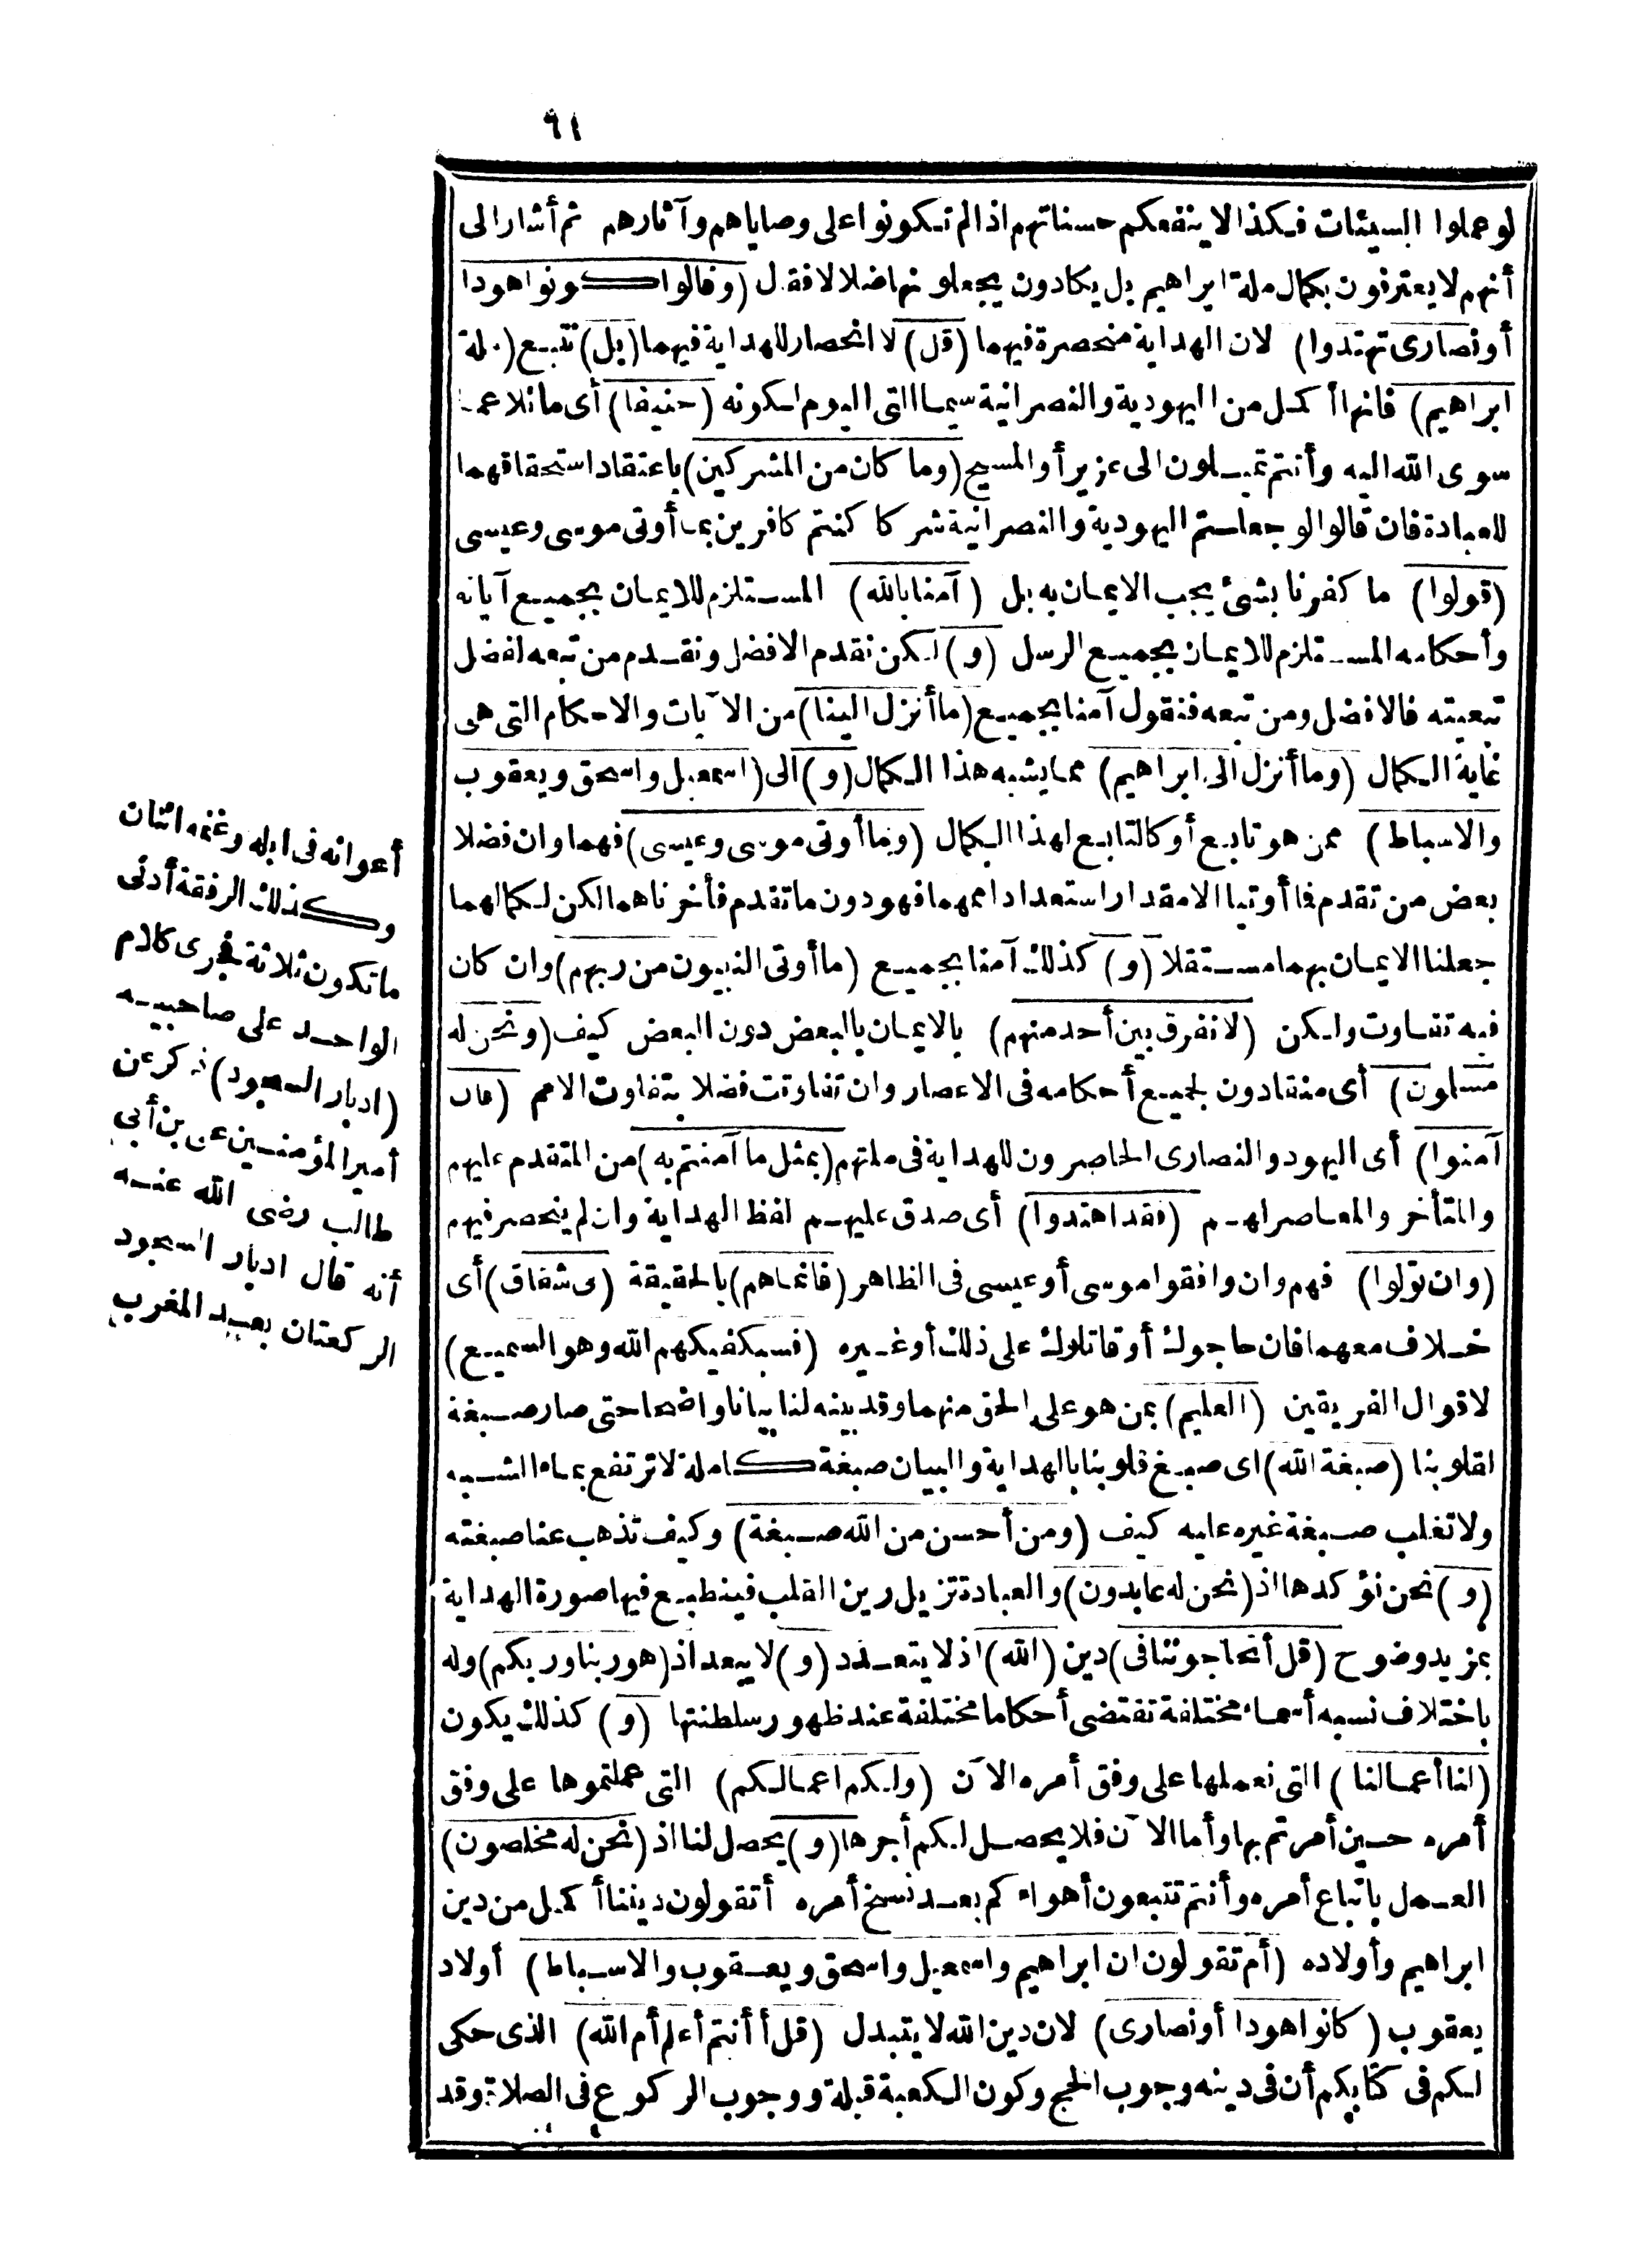 ٩١
لو عملوا السيئات فكذا لا ينفعكم حسناتهم اذا لم تكونوا على وصاياهم وآثارهم ثم أشار الى
أنهم لا يعترفون بكمال ملة ابراهيم بل يكادون يجعلونها ضلالا فقال (وقالوا كونوا هودا
أو نصارى تهتدوا) لان الهداية منحصرة فيهما (قل) لا انحصار للهداية فيهما (بل) نتبع (ملة
ابراهيم) فانها أكمل من اليهودية والنصرانية سيما التى اليوم لكونه (حنيفا) أى مائلا عما
سوى الله اليه وأنتم تميلون الى عزير أو المسيح (وما كان من المشركين) باعتقاد استحقاقهما
للعبادة فان قالوا لو جعلتم اليهودية والنصرانية شركا كنتم كافرين بما أوتى موسى وعيسى
(قولوا) ما كفرنا بشئ يجب الايمان به بل (آمنا بالله) المستلزم للايمان بجميع آياته
وأحكامه المستلزم للايمان بجميع الرسل (و) لكن نقدم الافضل ونقدم من تبعه لفضل
تبعيته فالافضل ومن تبعه فنقول آمنا بجميع (ما أنزل الينا) من الآيات والاحكام التى هى
غاية الكمال (وما أنزل الى ابراهيم) مما يشبه هذا الكمال (و) الى (اسمعيل واسحق ويعقوب
والاسباط) ممن هو تابع أو كالتابع لهذا الكمال (وما أوتى موسى وعيسى) فهما وان فضلا
بعض من تقدم فما أوتيا الا مقدار استعداد أممهما فهو دون ما تقدم فأخرناهما لكن لكمالهما
جعلنا الايمان بهما مستقلا (و) كذلك آمنا بجميع (ما أوتى النبيون من ربهم) وان كان
فيه تفاوت ولكن (لا نفرق بين أحد منهم) بالايمان بالبعض دون البعض كيف (ونحن له
مسلمون) أى منقادون لجميع أحكامه فى الاعصار وان تفاوتت فضلا بتفاوت الامم (فان
آمنوا) أى اليهود والنصارى الحاصرون للهداية فى ملتهم (بمثل ما آمنتم به) من المتقدم عليهم
والمتأخر والمعاصر لهم (فقد اهتدوا) أى صدق عليهم لفظ الهداية وان لم ينحصر فيهم
(وان تولوا) فهم وان وافقوا موسى أو عيسى فى الظاهر (فانما هم) بالحقيقة (فى شقاق) أى
خلاف معهما فان حاجوك أو قاتلوك على ذلك أو غيره (فسيكفيكهم الله وهو السميع)
لاقوال الفريقين (العليم) بمن هو على الحق منهما وقد بينه لنا بيانا واضحا حتى صار صبغة
لقلوبنا (صبغة الله) اى صبغ قلوبنا بالهداية والبيان صبغة كاملة لا ترتفع بماء الشبه
ولا تغلب صبغة غيره عليه كيف (ومن أحسن من الله صبغة) وكيف تذهب عنا صبغته
(و) نحن نؤكدها اذ (نحن له عابدون) والعبادة تزيل رين القلب فينطبع فيها صورة الهداية
بمزيد وضوح (قل أتحاجوننا فى) دين (الله) اذ لا يتعدد (و) لا يبعد اذ (هو ربنا وربكم) وله
باختلاف نسبه أسماء مختلفة تقتضى أحكاما مختلفة عند ظهور سلطنتها (و) كذلك يكون
(لنا أعمالنا) التى نعملها على وفق أمره الآن (ولكم اعمالكم) التى عملتموها على وفق
أمره حين أمرتم بها وأما الآن فلا يحصل لكم أجرها (و) يحصل لنا اذ (نحن له مخلصون)
العمل باتباع أمره وأنتم تتبعون أهواءكم بعد نسخ أمره أتقولون ديننا أكمل من دين
ابراهيم وأولاده (أم تقولون ان ابراهيم واسمعيل واسحق ويعقوب والاسباط) أولاد
يعقوب (كانوا هودا أو نصارى) لان دين الله لا يتبدل (قل أأنتم أعلم أم الله) الذى حكى
لكم فى كتابكم أن فى دينه وجوب الحج وكون الكعبة قبلة ووجوب الركوع فى الصلاة وقد
أعوانه فى ابله وغنمه اثنان
وكذلك الرفقة أدنى
ما تكون ثلاثة فجرى كلام
الواحد على صاحبيه
(ادبار السجود) ذكر عن
أمير المؤمنين على بن أبى
طالب رضى الله عنه
أنه قال ادبار السجود
الركعتان بعد المغرب